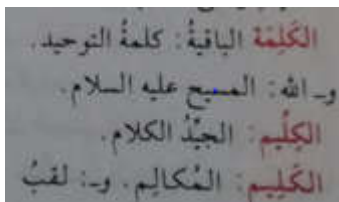 الكَلِمَةُ الباقيةُ: كلمةُ التوحيد.
و_ الله: المسيح عليه السلام.
الكِلِّيم: الجيِّدُ الكلام.
الكَلِيم: المُكالِم. و_: لقبُ